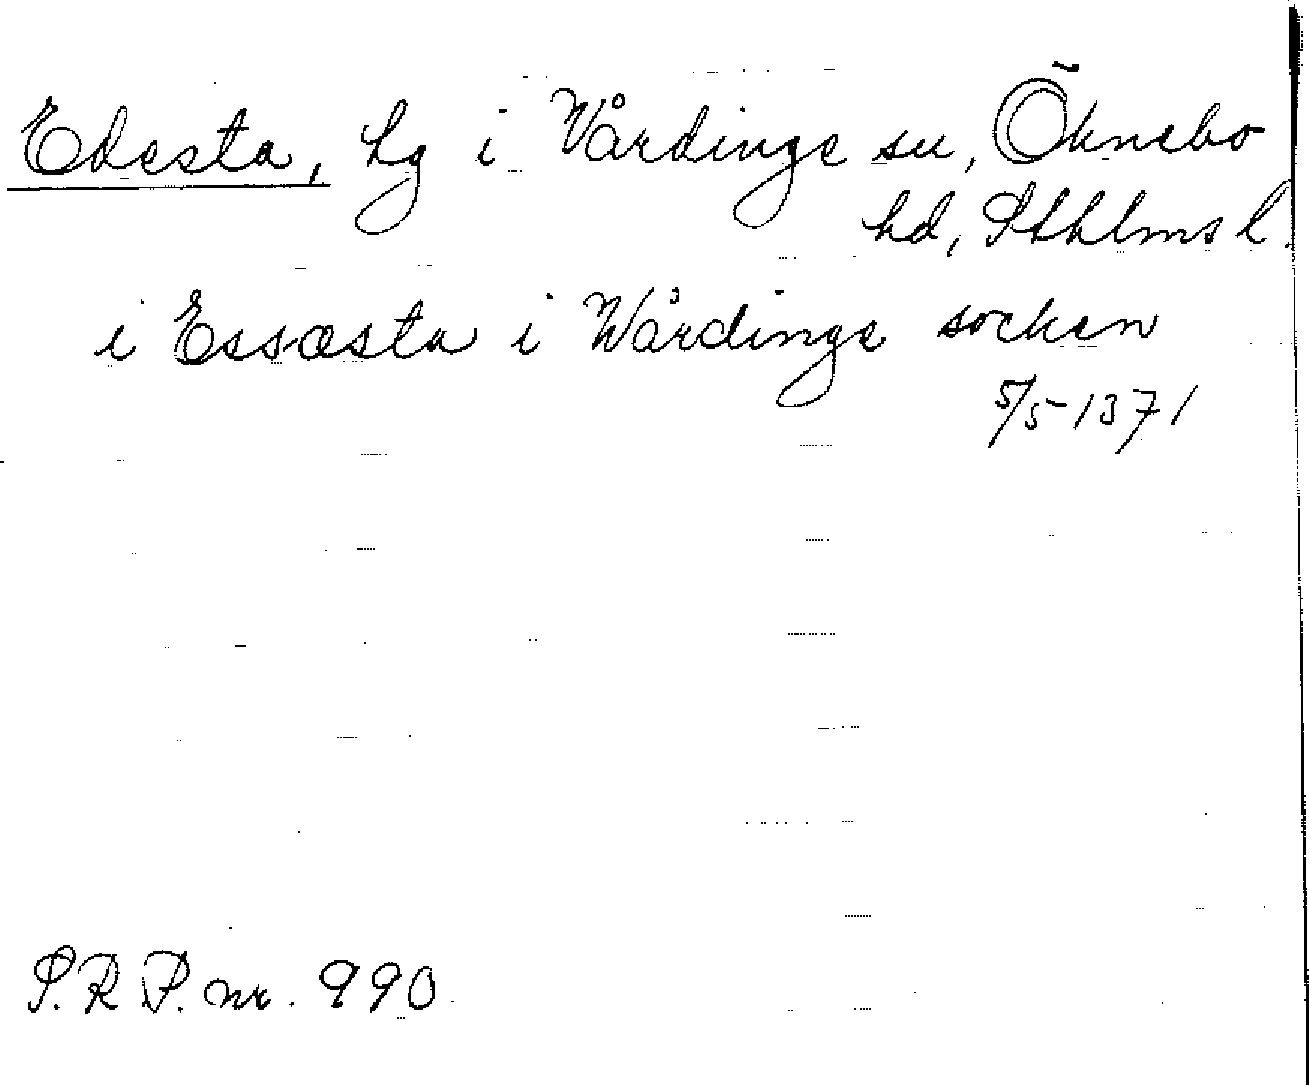 Edesta, hg i Vårdinge sn, Öknebo
hd, Sthlms l.
i Essæsta i Wårdinge socken
5/5-1371
S.R.P. nr. 990